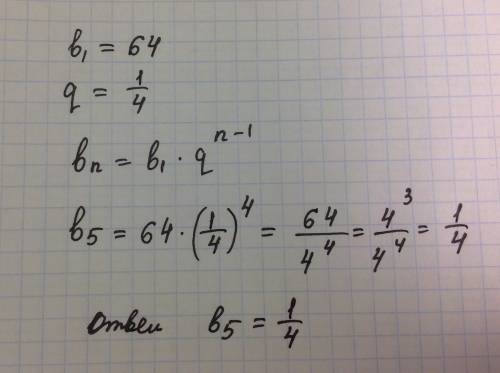 b₁ = 64
q = 1/4
bₙ = b₁ · qⁿ⁻¹
b₅ = 64 · (1/4)⁴ = 64/4⁴ = 4³/4⁴ = 1/4
Ответ b₅ = 1/4